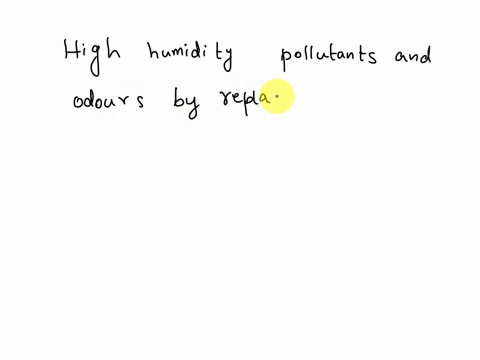 High humidity pollutants and
odours by repla